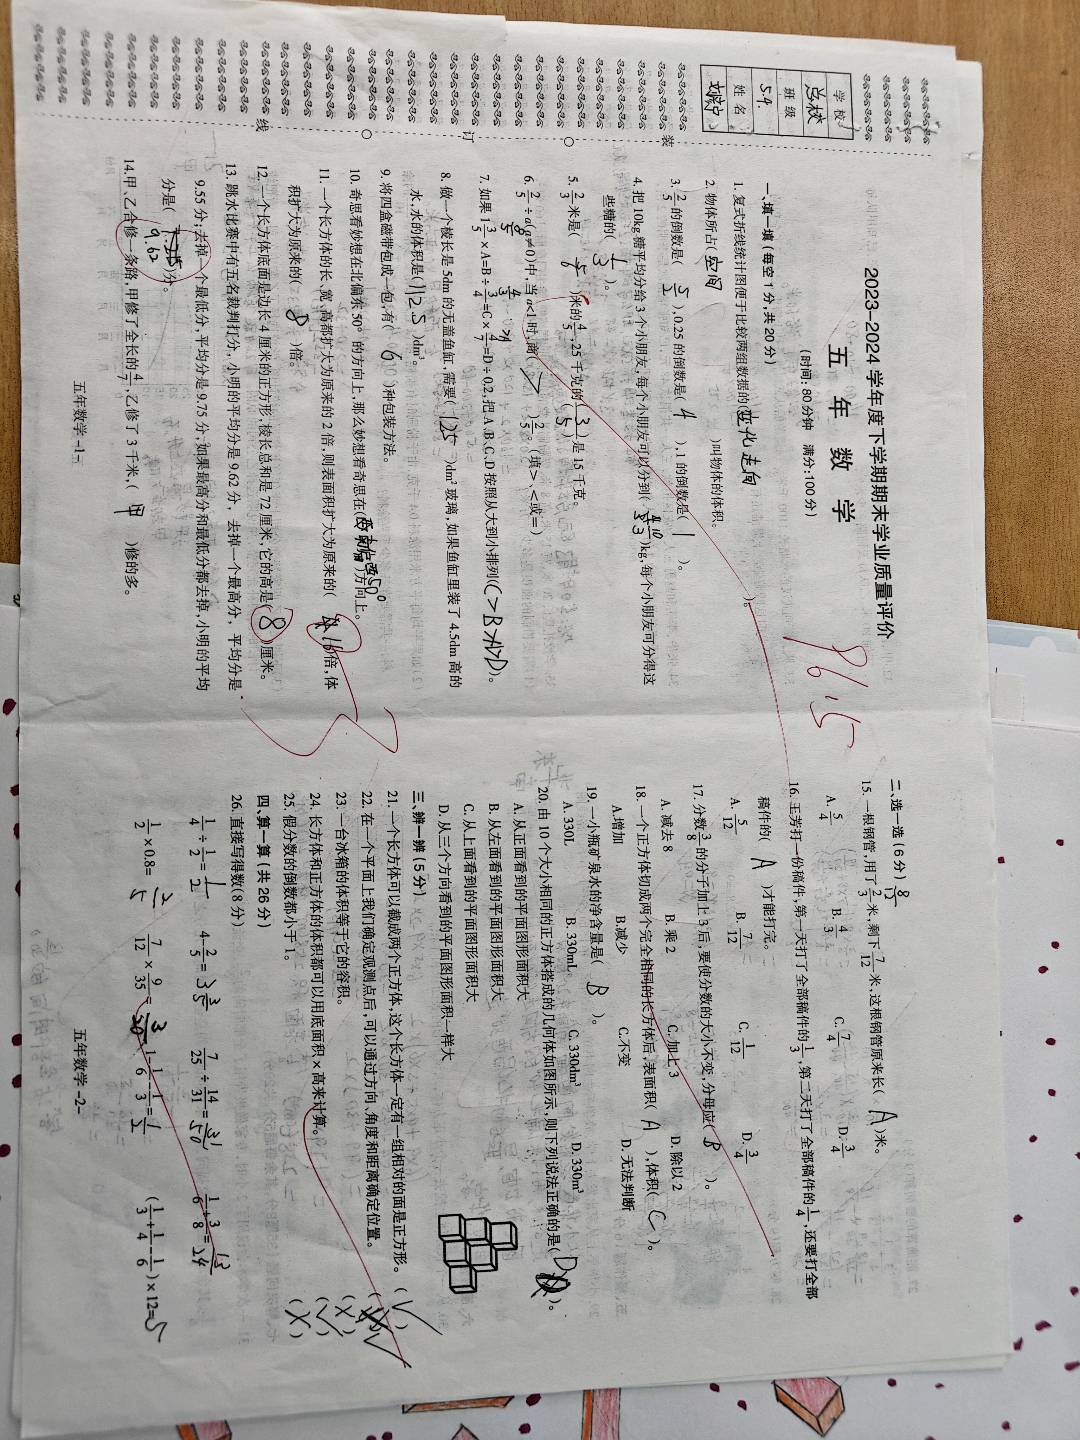 2023-2024学年度下学期期末学业质量评价
五年数学
(时间:80分钟 满分:100分)
96.5
学校
班级
5.4
姓名
装
订
线
一、填一填(每空1分,共20分)
1. 复式折线统计图便于比较两组数据的(变化走向)。
2. 物体所占(空间)叫物体的体积。
3. 2/5的倒数是(5/2),0.25的倒数是(4),1的倒数是(1)。
4. 把10kg糖平均分给3个小朋友,每个小朋友可以分到(10/3)kg,每个小朋友可分得这
些糖的(1/3)。
5. 2/3米是(5/6)米的4/5,25千克的(3/5)是15千克。
6. 2/5÷a(a≠0)中,当a<1时,商(>)2/5(填>、<或=)
7. 如果1 3/5×A=B÷3/4=C×4/7=D÷0.2,把A、B、C、D按照从大到小排列(C>B>A>D)。
8. 做一个棱长是5dm的无盖鱼缸,需要(125)dm²玻璃,如果鱼缸里装了4.5dm高的
水,水的体积是(112.5)dm³。
9. 将四盒磁带包成一包,有(6)种包装方法。
10. 奇思看妙想在北偏东50°的方向上,那么妙想看奇思在(南偏西50°)方向上。
11. 一个长方体的长、宽、高都扩大为原来的2倍,则表面积扩大为原来的(16)倍,体
积扩大为原来的(8)倍。
12. 一个长方体底面是边长4厘米的正方形,棱长总和是72厘米,它的高是(8)厘米。
13. 跳水比赛中有五名裁判打分,小明的平均分是9.62分,去掉一个最高分,平均分是
9.55分;去掉一个最低分,平均分是9.75分;如果最高分和最低分都去掉,小明的平均
分是(9.62)分。
14. 甲、乙合修一条路,甲修了全长的4/7,乙修了3千米,(甲)修的多。
五年数学-1-
二、选一选(6分)
15. 一根钢管,用了2/3米,剩下7/12米,这根钢管原来长(A)米。
A. 5/4 B. 4/3 C. 7/4 D. 3/4
16. 王芳打一份稿件,第一天打了全部稿件的1/3,第二天打了全部稿件的1/4,还要打全部
稿件的(A)才能打完。
A. 5/12 B. 7/12 C. 1/12 D. 3/4
17. 分数3/8的分子加上3后,要使分数的大小不变,分母应(B)。
A. 减去8 B. 乘2 C. 加上3 D. 除以2
18. 一个正方体切成两个完全相同的长方体后,表面积(A),体积(C)。
A.增加 B.减少 C.不变 D. 无法判断
19. 一小瓶矿泉水的净含量是(B)。
A. 330L B. 330mL C. 330dm³ D. 330m³
20. 由10个大小相同的正方体搭成的几何体如图所示,则下列说法正确的是(D)。
A. 从正面看到的平面图形面积大
B. 从左面看到的平面图形面积大
C. 从上面看到的平面图形面积大
D. 从三个方向看到的平面图形面积一样大
三、辨一辨(5分)
21. 一个长方体可以截成两个正方体,这个长方体一定有一组相对的面是正方形。(√)
22. 在一个平面上我们确定观测点后,可以通过方向、角度和距离确定位置。
23. 一台冰箱的体积等于它的容积。(×)
24. 长方体和正方体的体积都可以用底面积×高来计算。(√)
25. 假分数的倒数都小于1。(×)
四、算一算(共26分)
26.直接写得数(8分)
1/4÷1/2=1/2 4-2/5=3 3/5 7/25÷14/31=31/50 1/6+3/8=13/24
1/2×0.8=2/5 7/12×9/35=3/20 1-1/6-1/3=1/2 (1/3+1/4-1/6)×12=5
五年数学-2-